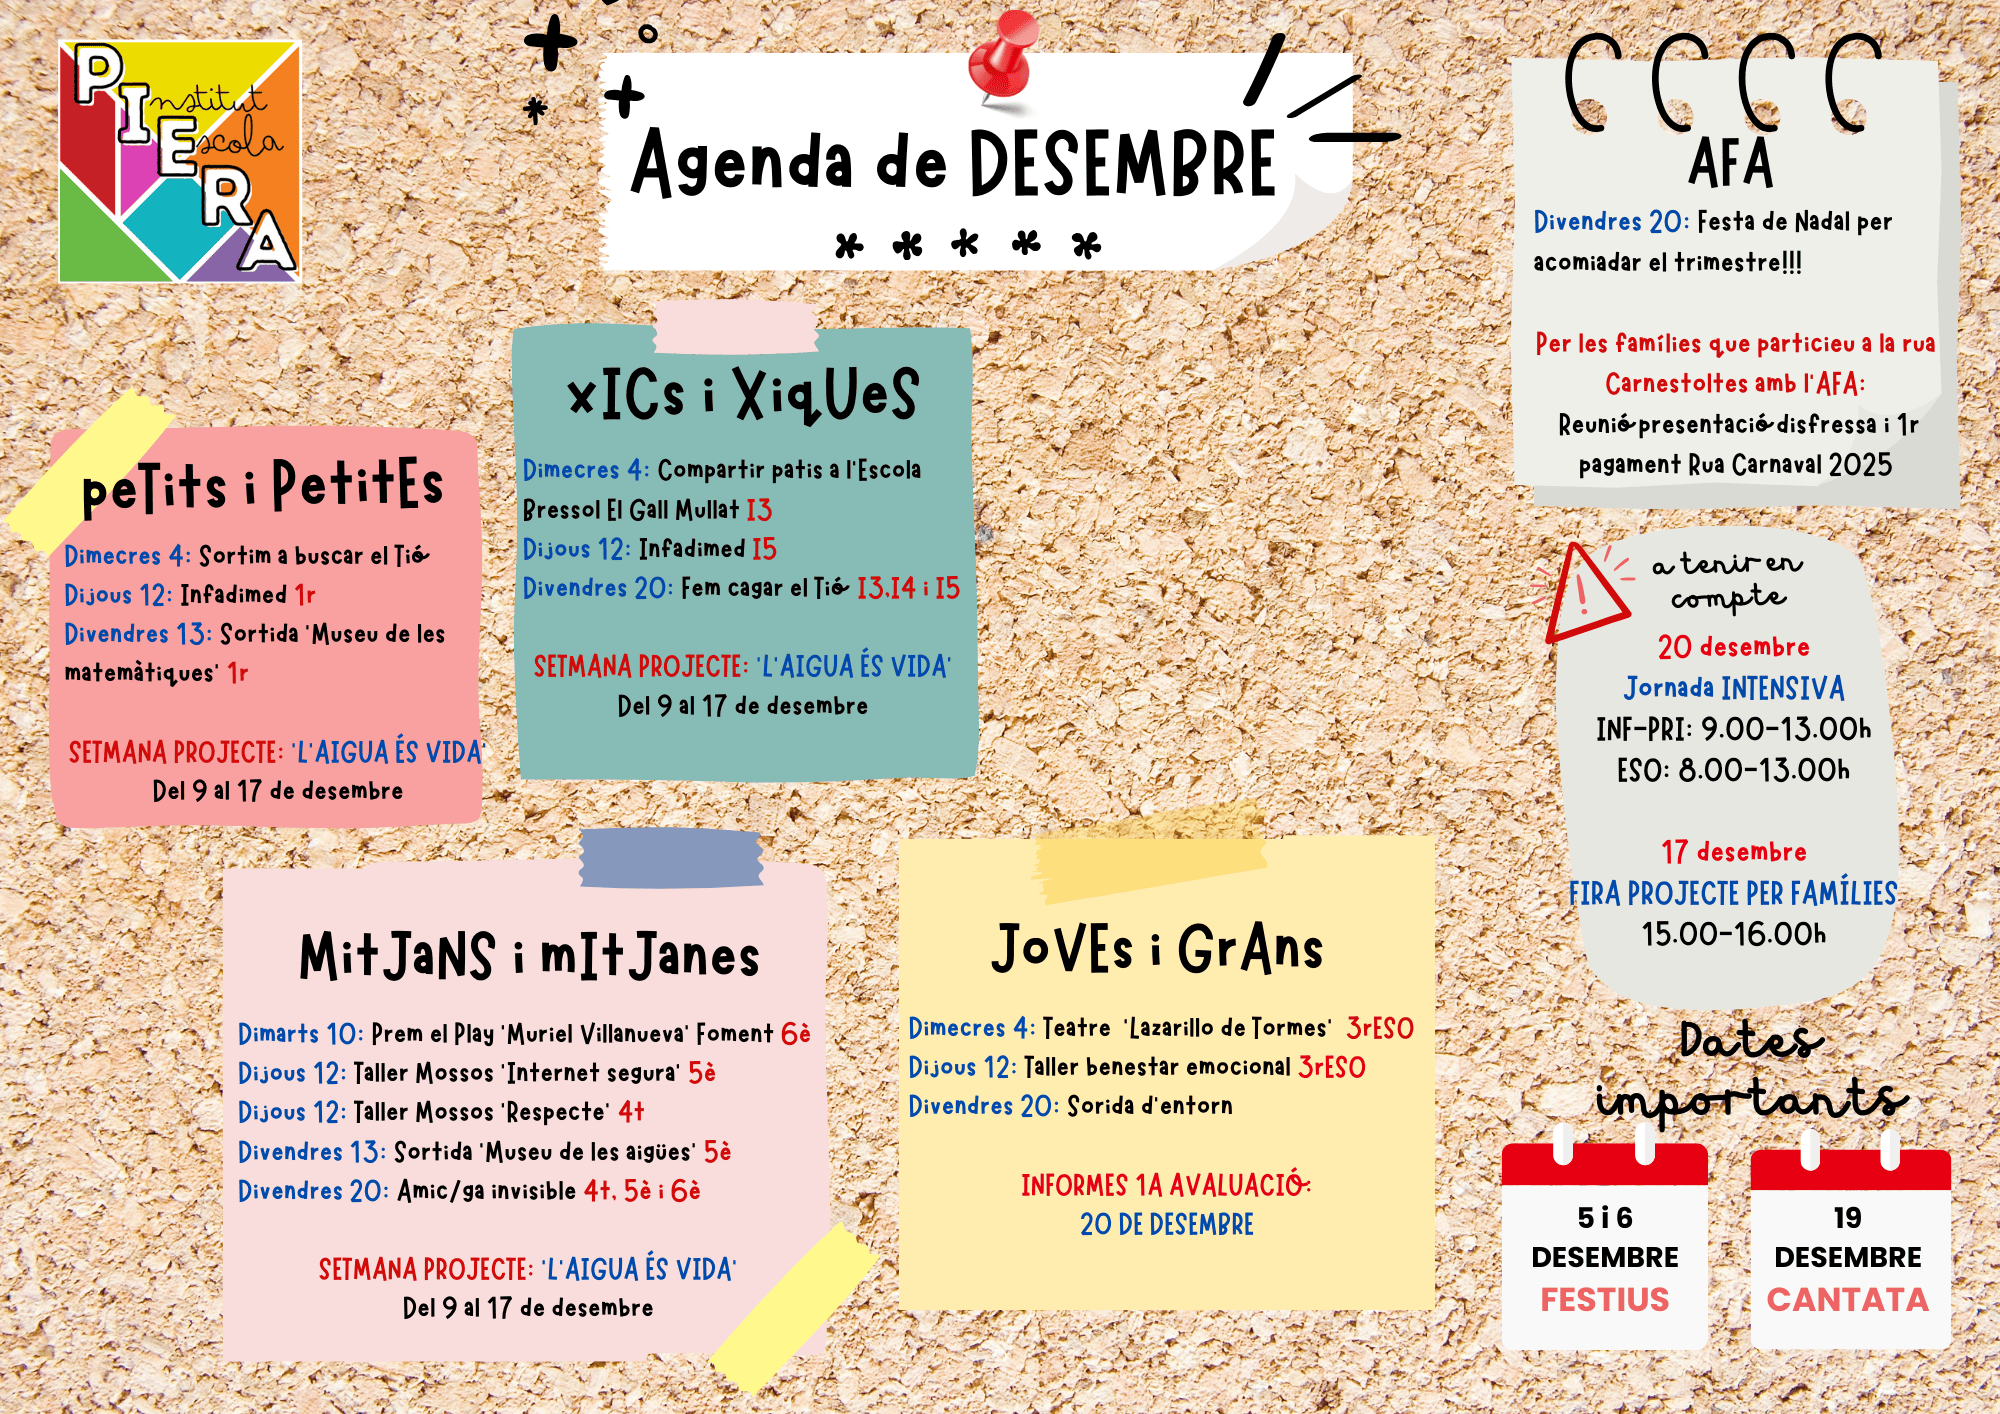 PIERA
Institut
Escola
Agenda de DESEMBRE
* * * * *
AFA
Divendres 20: Festa de Nadal per
acomiadar el trimestre!!!
Per les famílies que particieu a la rua
Carnestoltes amb l'AFA:
Reunió presentació disfressa i 1r
pagament Rua Carnaval 2025
xICs i XiqUeS
Dimecres 4: Compartir patis a l'Escola
Bressol El Gall Mullat I3
Dijous 12: Infadimed I5
Divendres 20: Fem cagar el Tió I3,I4 i I5
SETMANA PROJECTE: 'L'AIGUA ÉS VIDA'
Del 9 al 17 de desembre
peTits i PetitEs
Dimecres 4: Sortim a buscar el Tió
Dijous 12: Infadimed 1r
Divendres 13: Sortida 'Museu de les
matemàtiques' 1r
SETMANA PROJECTE: 'L'AIGUA ÉS VIDA'
Del 9 al 17 de desembre
a tenir en
compte
20 desembre
Jornada INTENSIVA
INF-PRI: 9.00-13.00h
ESO: 8.00-13.00h
17 desembre
FIRA PROJECTE PER FAMÍLIES
15.00-16.00h
MitJaNS i mItJanes
Dimarts 10: Prem el Play 'Muriel Villanueva' Foment 6è
Dijous 12: Taller Mossos 'Internet segura' 5è
Dijous 12: Taller Mossos 'Respecte' 4t
Divendres 13: Sortida 'Museu de les aigües' 5è
Divendres 20: Amic/ga invisible 4t, 5è i 6è
SETMANA PROJECTE: 'L'AIGUA ÉS VIDA'
Del 9 al 17 de desembre
JoVEs i GrAns
Dimecres 4: Teatre 'Lazarillo de Tormes' 3rESO
Dijous 12: Taller benestar emocional 3rESO
Divendres 20: Sorida d'entorn
INFORMES 1A AVALUACIÓ:
20 DE DESEMBRE
Dates
importants
5 i 6
DESEMBRE
FESTIUS
19
DESEMBRE
CANTATA